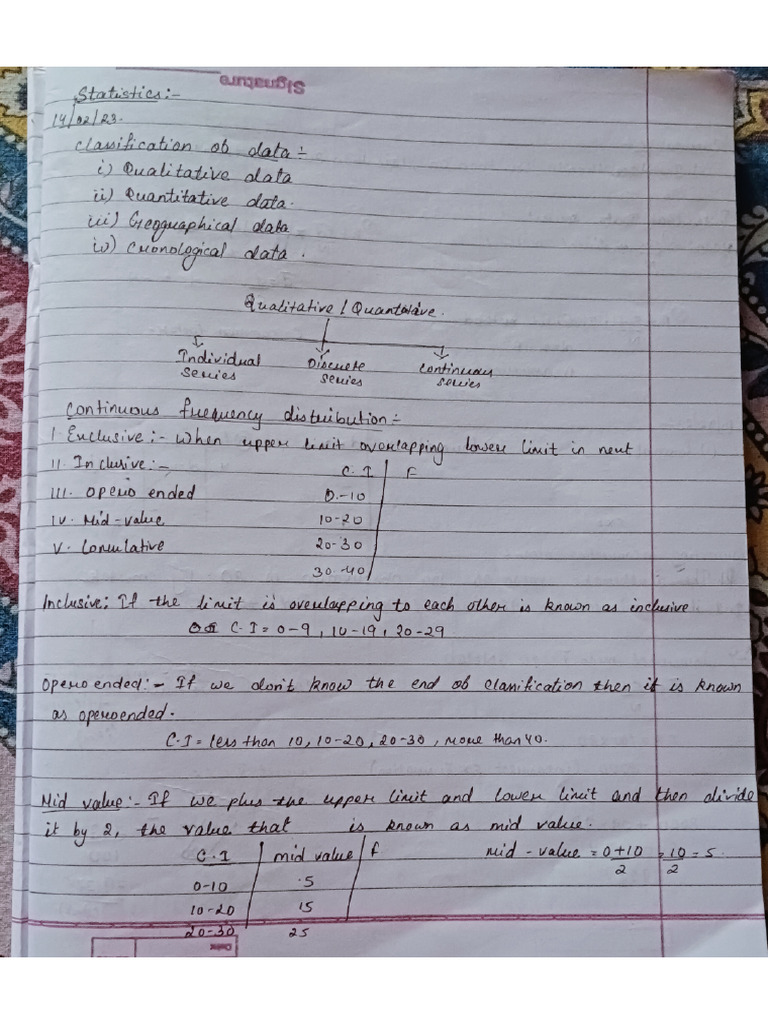 Signature
Statistics:-
14/02/23.
Classification ob data :-
i) Qualitative data
ii) Quantitative data.
iii) Geoguaphical data
iv) Cronological data .
Qualitative / Quantative.
Individual series
Discrete series
Continuous series
Continuous frequency distribution :-
I. Exclusive :- When upper limit overlapping lower limit in next
II. Inclusive :- C.I F
III. opero ended 0.-10
IV. Mid-value 10-20
V. Comulative 20-30
30-40
Inclusive: If the limit is overlapping to each other is known as inclusive
C.I = 0-9, 10-19, 20-29
Opero ended :- If we don't know the end ob classification then it is known
as operoended.
C.I = less than 10, 10-20, 20-30, more than 40.
Mid value :- If we plus the upper limit and lower limit and then divide
it by 2, the value that is known as mid value.
C.I mid value F mid - value = 0+10/2 = 10/2 = 5.
0-10 .5
10-20 15
20-30 25
Date